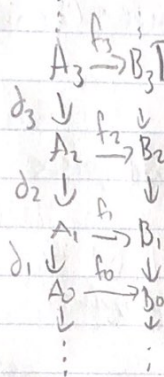 ⋮ ⋮
A₃ →f₃ B₃
∂₃ ↓ ↓
A₂ →f₂ B₂
∂₂ ↓ ↓
A₁ →f₁ B₁
∂₁ ↓ ↓
A₀ →f₀ B₀
↓ ↓
⋮ ⋮